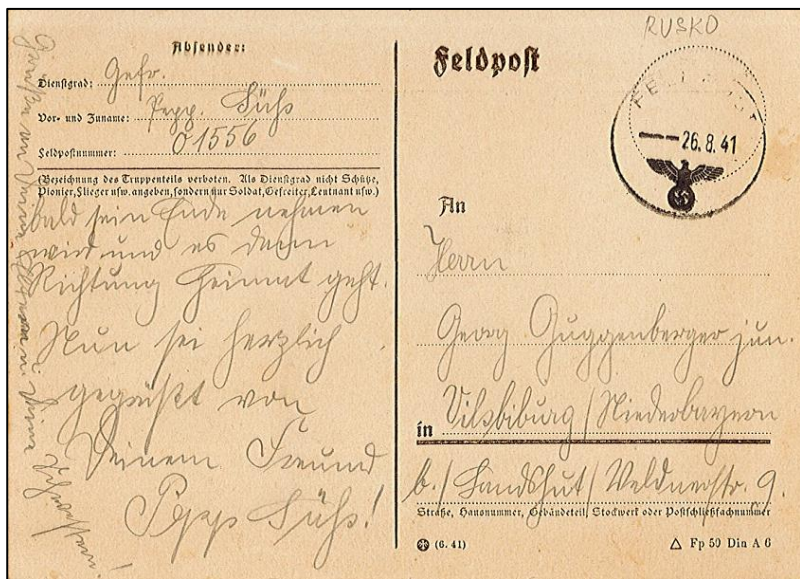 Absender:
Dienstgrad: Gefr.
Vor- und Zuname: Pepp. Süß
Feldpostnummer: 01556
(Bezeichnung des Truppenteils verboten. Als Dienstgrad nicht Schütze,
Pionier, Flieger usw. angeben, sondern nur Soldat, Gefreiter, Leutnant usw.)
bald sein Ende nehmen
wird und es dann
Richtung Heimat geht.
Nun sei herzlich
gegrüßt von
Deinem Freund
Pepp Süß!
Grüße an Deine Eltern u. Deine Schwestern!
Feldpost
RUSKO
FELDPOST
26.8.41
An
Herrn
Georg Guggenberger jun.
in Vilsbiburg / Niederbayern
b./ Landshut / Veldnerstr. 9.
Straße, Hausnummer, Gebäudeteil, Stockwerk oder Postschließfachnummer
(6. 41)
Fp 50 Din A 6